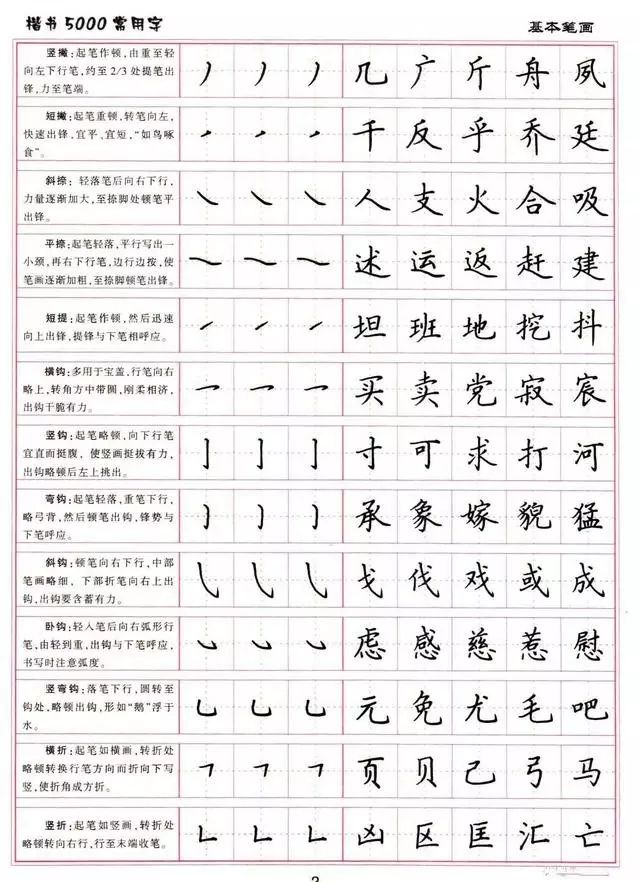 楷书5000常用字
基本笔画
竖撇:起笔作顿,由重至轻
向左下行笔,约至2/3处提笔出
锋,力至笔端。
几 广 斤 舟 夙
短撇:起笔重顿,转笔向左,
快速出锋,宜平、宜短,“如鸟啄
食”。
千 反 乎 乔 廷
斜捺:轻落笔后向右下行,
力量逐渐加大,至捺脚处顿笔平
出锋。
人 支 火 合 吸
平捺:起笔轻落,平行写出一
小颈,再右下行笔,边行边按,使
笔画逐渐加粗,至捺脚顿笔出锋。
述 运 返 赶 建
短提:起笔作顿,然后迅速
向上出锋,提锋与下笔相呼应。
坦 班 地 挖 抖
横钩:多用于宝盖,行笔向右
略上,转角方中带圆,刚柔相济,
出钩干脆有力。
买 卖 党 寂 宸
竖钩:起笔略顿,向下行笔
宜直而挺腹,使竖画挺拔有力,
出钩略顿后左上挑出。
寸 可 求 打 河
弯钩:起笔轻落,重笔下行,
略弓背,然后顿笔出钩,锋势与
下笔呼应。
承 象 嫁 貌 猛
斜钩:顿笔向右下行,中部
笔画略细,下部折笔向右上出
钩,出钩要含蓄有力。
戈 伐 戏 或 成
卧钩:轻入笔后向右弧形行
笔,由轻到重,出钩与下笔呼应,
书写时注意弧度。
虑 感 慈 惹 慰
竖弯钩:落笔下行,圆转至
钩处,略顿出钩,形如“鹅”浮于
水。
元 免 尤 毛 吧
横折:起笔如横画,转折处
略顿转换行笔方向而折向下写
竖,使折角成方折。
页 贝 己 弓 马
竖折:起笔如竖画,转折处
略顿转向右行,行至末端收笔。
凶 区 匡 汇 亡